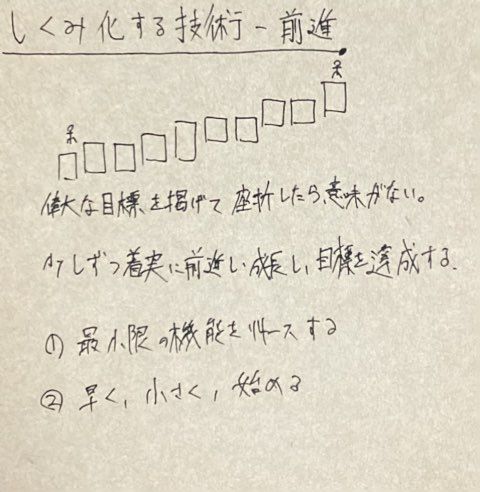 しくみ化する技術ー前進
偉大な目標を掲げて挫折したら意味がない。
少しずつ着実に前進し成長し、目標を達成する。
① 最小限の機能をリリースする
② 早く、小さく、始める